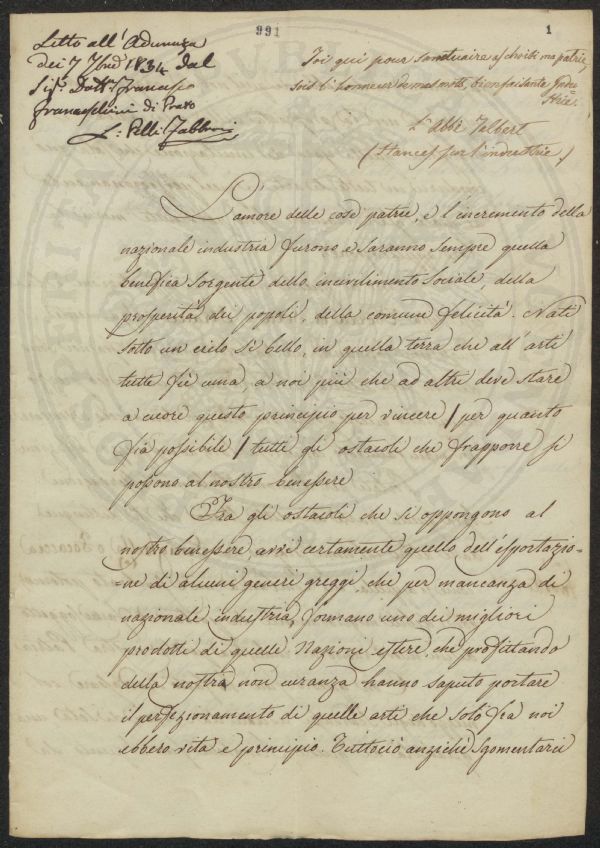 991
1
Letto all'Adunanza
dei 7 7bre 1834 dal
Sig.r Dott. Francesco
Franceschini di Prato
L: Pelli Fabbroni
Toi qui pour sanctuaire as choisi ma patrie,
Sois l'honneur de mes vers, bienfaisante Indu
strie.
L'Abbé Talbert
(Stances sur l'industrie,)
L'amore delle cose patrie, e l'incremento della
nazionale industria furono e saranno sempre quella
benefica sorgente dello incivilimento sociale, della
prosperità dei popoli, della comune felicità. Nati
sotto un cielo sì bello, in quella terra che all'arti
tutte fù cuna, a noi più che ad altri deve stare
a cuore questo principio per vincere / per quanto
fia possibile / tutti gli ostacoli che frapporre si
possono al nostro benessere
Fra gli ostacoli che si oppongono al
nostro benessere avvi certamente quello dell'esportazio=
=ne di alcuni generi greggi che per mancanza di
nazionale industria, formano uno dei migliori
prodotti di quelle Nazioni estere, che profittando
della nostra non curanza hanno saputo portare
il perfezionamento di quelle arti che solo fra noi
ebbero vita e principio. Tuttociò anziché sgomentarci